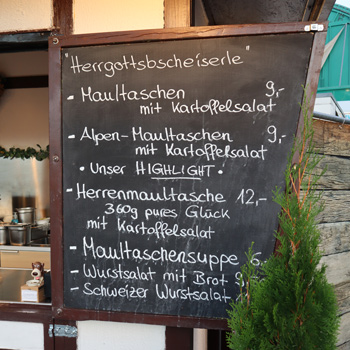 "Herrgottsbscheiserle"
- Maultaschen 9,-
mit Kartoffelsalat
- Alpen-Maultaschen 9,-
mit Kartoffelsalat
• Unser HIGHLIGHT •
- Herrenmaultasche 12,-
360g pures Glück
mit Kartoffelsalat
- Maultaschensuppe 6,-
- Wurstsalat mit Brot 9
- Schweizer Wurstsalat